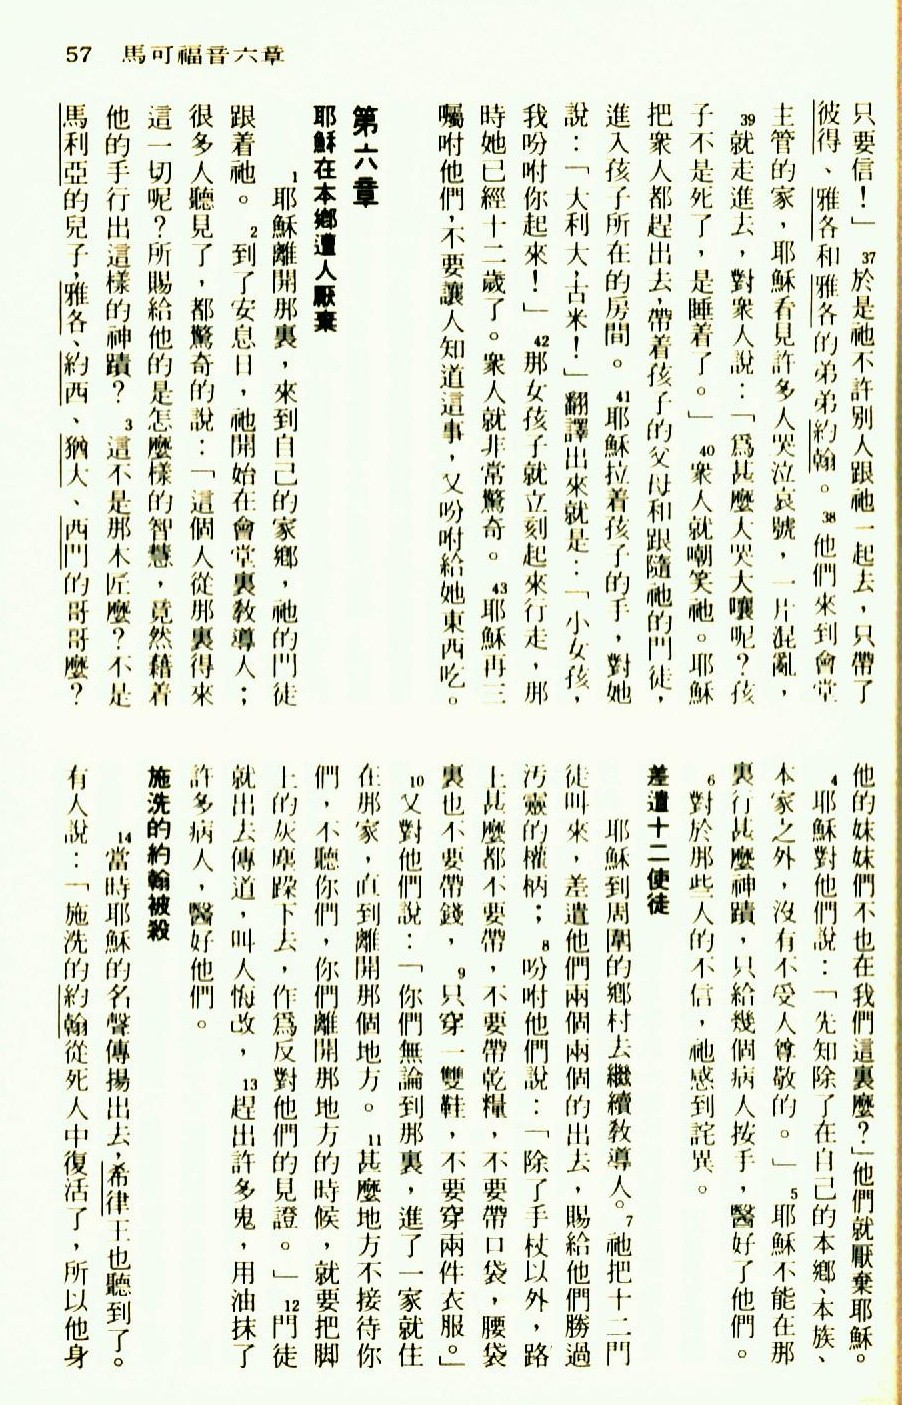 57 馬可福音六章
只要信！」37於是祂不許別人跟祂一起去，只帶了
彼得、雅各和雅各的弟弟約翰。38他們來到會堂
主管的家，耶穌看見許多人哭泣哀號，一片混亂，
39就走進去，對衆人說：「爲甚麼大哭大嚷呢？孩
子不是死了，是睡着了。」40衆人就嘲笑祂。耶穌
把衆人都趕出去，帶着孩子的父母和跟隨祂的門徒，
進入孩子所在的房間。41耶穌拉着孩子的手，對她
說：「大利大，古米！」翻譯出來就是：「小女孩，
我吩咐你起來！」42那女孩子就立刻起來行走，那
時她已經十二歲了。衆人就非常驚奇。43耶穌再三
囑咐他們，不要讓人知道這事，又吩咐給她東西吃。
第六章
耶穌在本鄉遭人厭棄
1耶穌離開那裏，來到自己的家鄉，祂的門徒
跟着祂。2到了安息日，祂開始在會堂裏敎導人；
很多人聽見了，都驚奇的說：「這個人從那裏得來
這一切呢？所賜給他的是怎麼樣的智慧，竟然藉着
他的手行出這樣的神蹟？3這不是那木匠麼？不是
馬利亞的兒子，雅各、約西、猶大、西門的哥哥麼？
他的妹妹們不也在我們這裏麼？」他們就厭棄耶穌。
4耶穌對他們說：「先知除了在自己的本鄉、本族、
本家之外，沒有不受人尊敬的。」5耶穌不能在那
裏行甚麼神蹟，只給幾個病人按手，醫好了他們。
6對於那些人的不信，祂感到詫異。
差遣十二使徒
耶穌到周圍的鄉村去繼續敎導人。7祂把十二門
徒叫來，差遣他們兩個兩個的出去，賜給他們勝過
汚靈的權柄；8吩咐他們說：「除了手杖以外，路
上甚麼都不要帶，不要帶乾糧，不要帶口袋，腰袋
裏也不要帶錢，9只穿一雙鞋，不要穿兩件衣服。」
10又對他們說：「你們無論到那裏，進了一家就住
在那家，直到離開那個地方。11甚麼地方不接待你
們，不聽你們，你們離開那地方的時候，就要把脚
上的灰塵跺下去，作爲反對他們的見證。」12門徒
就出去傳道，叫人悔改，13趕出許多鬼，用油抹了
許多病人，醫好他們。
施洗的約翰被殺
14當時耶穌的名聲傳揚出去，希律王也聽到了。
有人說：「施洗的約翰從死人中復活了，所以他身